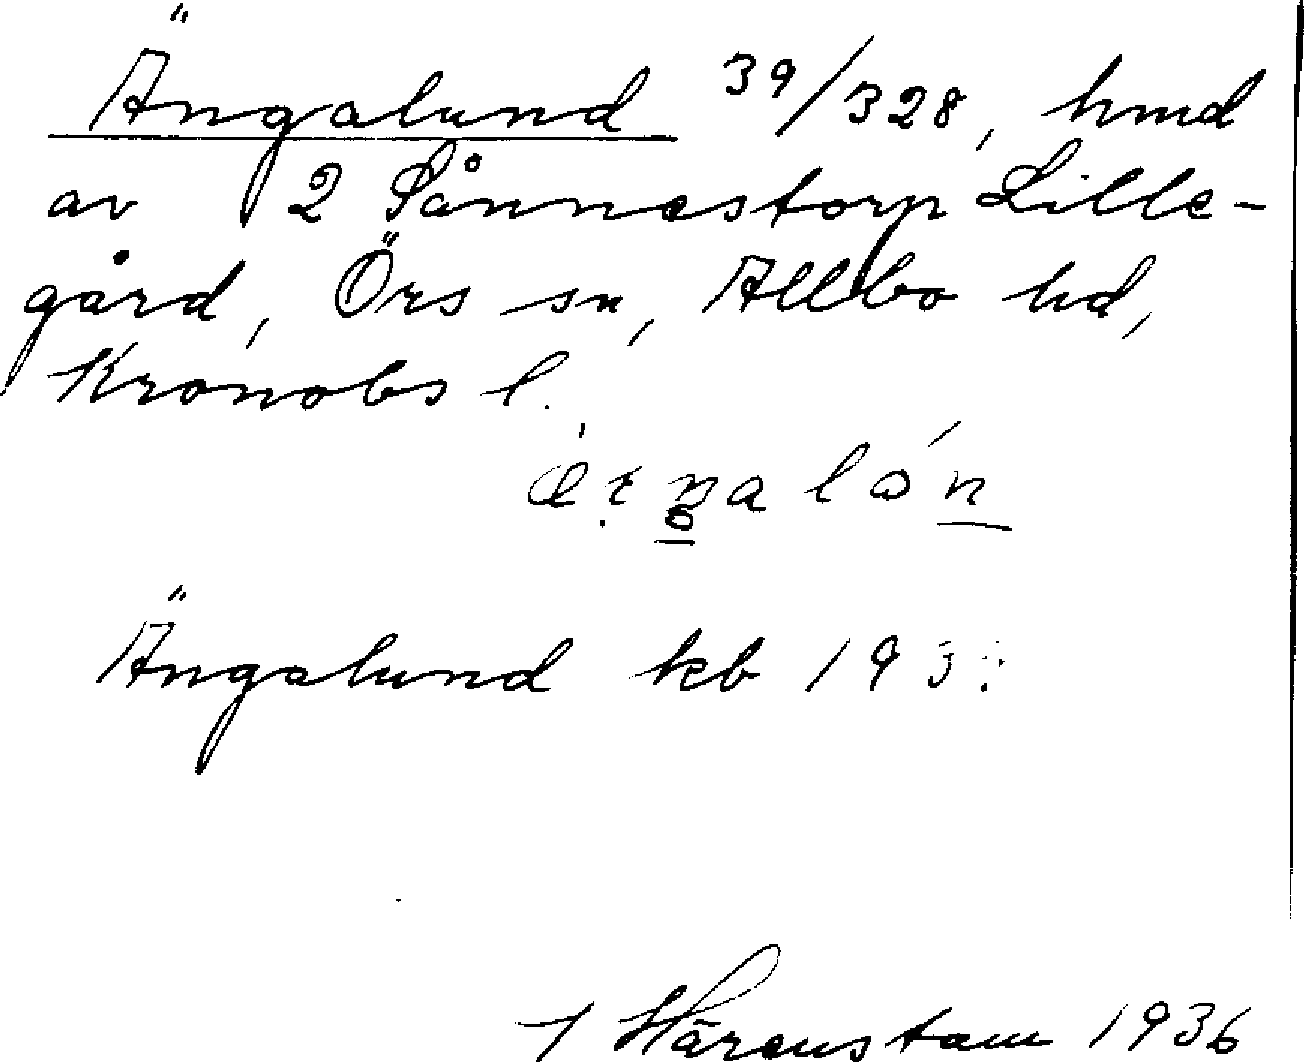 Ängalund 39/328, hmd
av 2 Sånnestorp Lille-
gård, Örs sn, Allbo hd,
Kronobs l.
Ängalund kb
Härenstam 1936